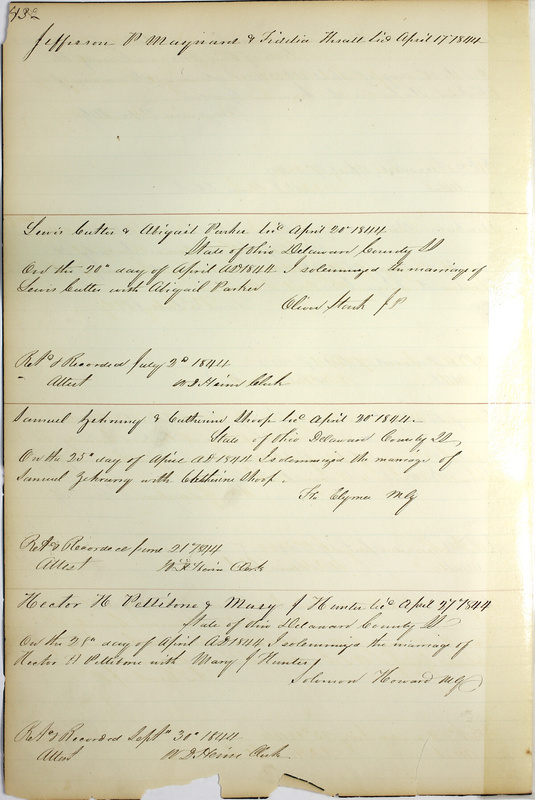 Jefferson P Maynard & Fidelia Thrall Licd April 17th 1844
Lewis Cutler & Abigail Parker Licd April 20th 1844
State of Ohio Delaware County SS
On the 20th day of April AD 1844 I solemnized the marriage of
Lewis Cutler with Abigail Parker
Oliver Stark JP
Retd & Recorded July 2d 1844
Attest W D Heim Clerk
Samuel Zehrung & Catherine Shoop Licd April 20th 1844
State of Ohio Delaware County SS
On the 25th day of April AD 1844 I solemnized the marriage of
Samuel Zehrung with Catherine Shoop
Clymer MG
Retd & Recorded June 21st 1844
Attest W D Heim Clerk
Hector H Pettibone & Mary J Hunter Licd April 27th 1844
State of Ohio Delaware County SS
On the day of April AD 1844 I solemnized the marriage of
Hector H Pettibone with Mary J Hunter
Solomon Howard MG
Retd & Recorded Septr 30th 1844
Attest W D Heim Clerk